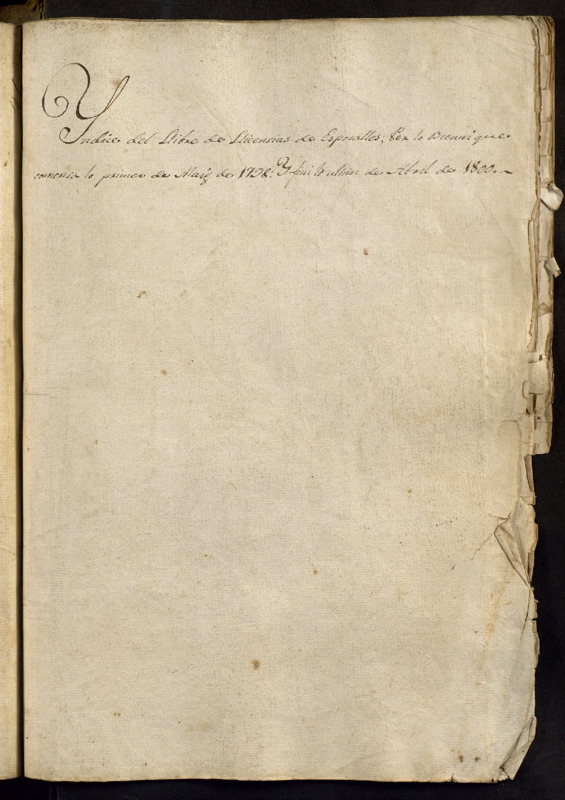 Yndice del Llibre de Llicencias de Esponalles, Per lo Bienni que
comensa lo primer de Maig de 1798: Y fini lo ultim de Abril de 1800.